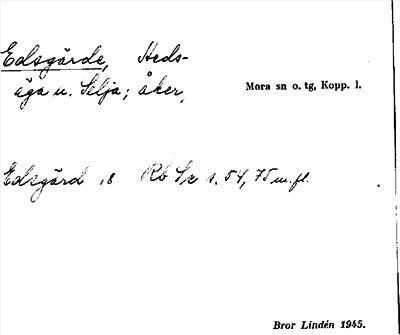 Edsgärde, Heds-
äga u. Selja; åker,
Mora sn o. tg, Kopp. l.
Edsgärd 18 Rb s. 54, 75 m.fl.
Bror Lindén 1945.